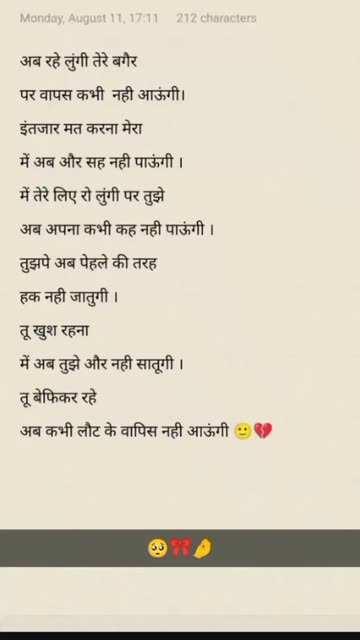 Monday, August 11, 17:11 212 characters
अब रहे लुंगी तेरे बगैर
पर वापस कभी नही आऊंगी।
इंतजार मत करना मेरा
में अब और सह नही पाऊंगी ।
में तेरे लिए रो लुंगी पर तुझे
अब अपना कभी कह नही पाऊंगी ।
तुझपे अब पेहले की तरह
हक नही जातुगी ।
तू खुश रहना
में अब तुझे और नही सातूगी ।
तू बेफिकर रहे
अब कभी लौट के वापिस नही आऊंगी 🙂💔
🥺🎀🤌